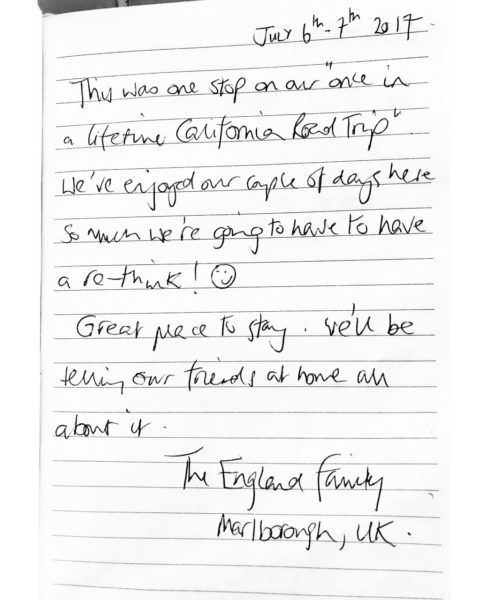 July 6th - 7th 2017.
This was one stop on our "once in
a lifetime California Road Trip".
We've enjoyed our couple of days here
so much we're going to have to have
a re-think! ☺
Great place to stay. We'll be
telling our friends at home all
about it.
The England Family
Marlborough, UK.